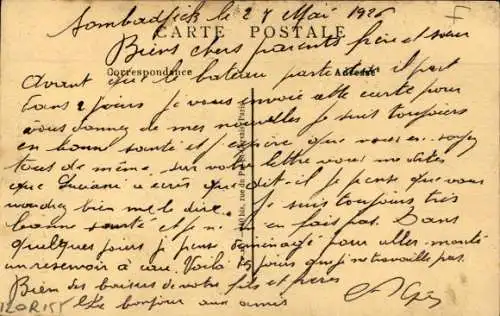 Sombadfick le 27 Mai 1926
CARTE POSTALE
Biens chers parents frère et sœur
Correspondance
Adresse
Avant que le bateau parte il part
dans 2 jours je vous envoie cette carte pour
vous donner de mes nouvelles je suis toujours
en bonne santé et j'espère que vous en soyez
tous de même sur votre lettre vous me dites
que Luciani a écrit que dit-il je pense que vous
voudrez bien me le dire. Je suis toujours très
bonne santé et je ne en fais pas. Dans
quelques jours je pense déménagé pour aller monté
un reservoir à eau. Voilà 15 jours que je ne travaille pas.
Bien des baisers de votre fils et frère
Le bonjour aux amis
120R155